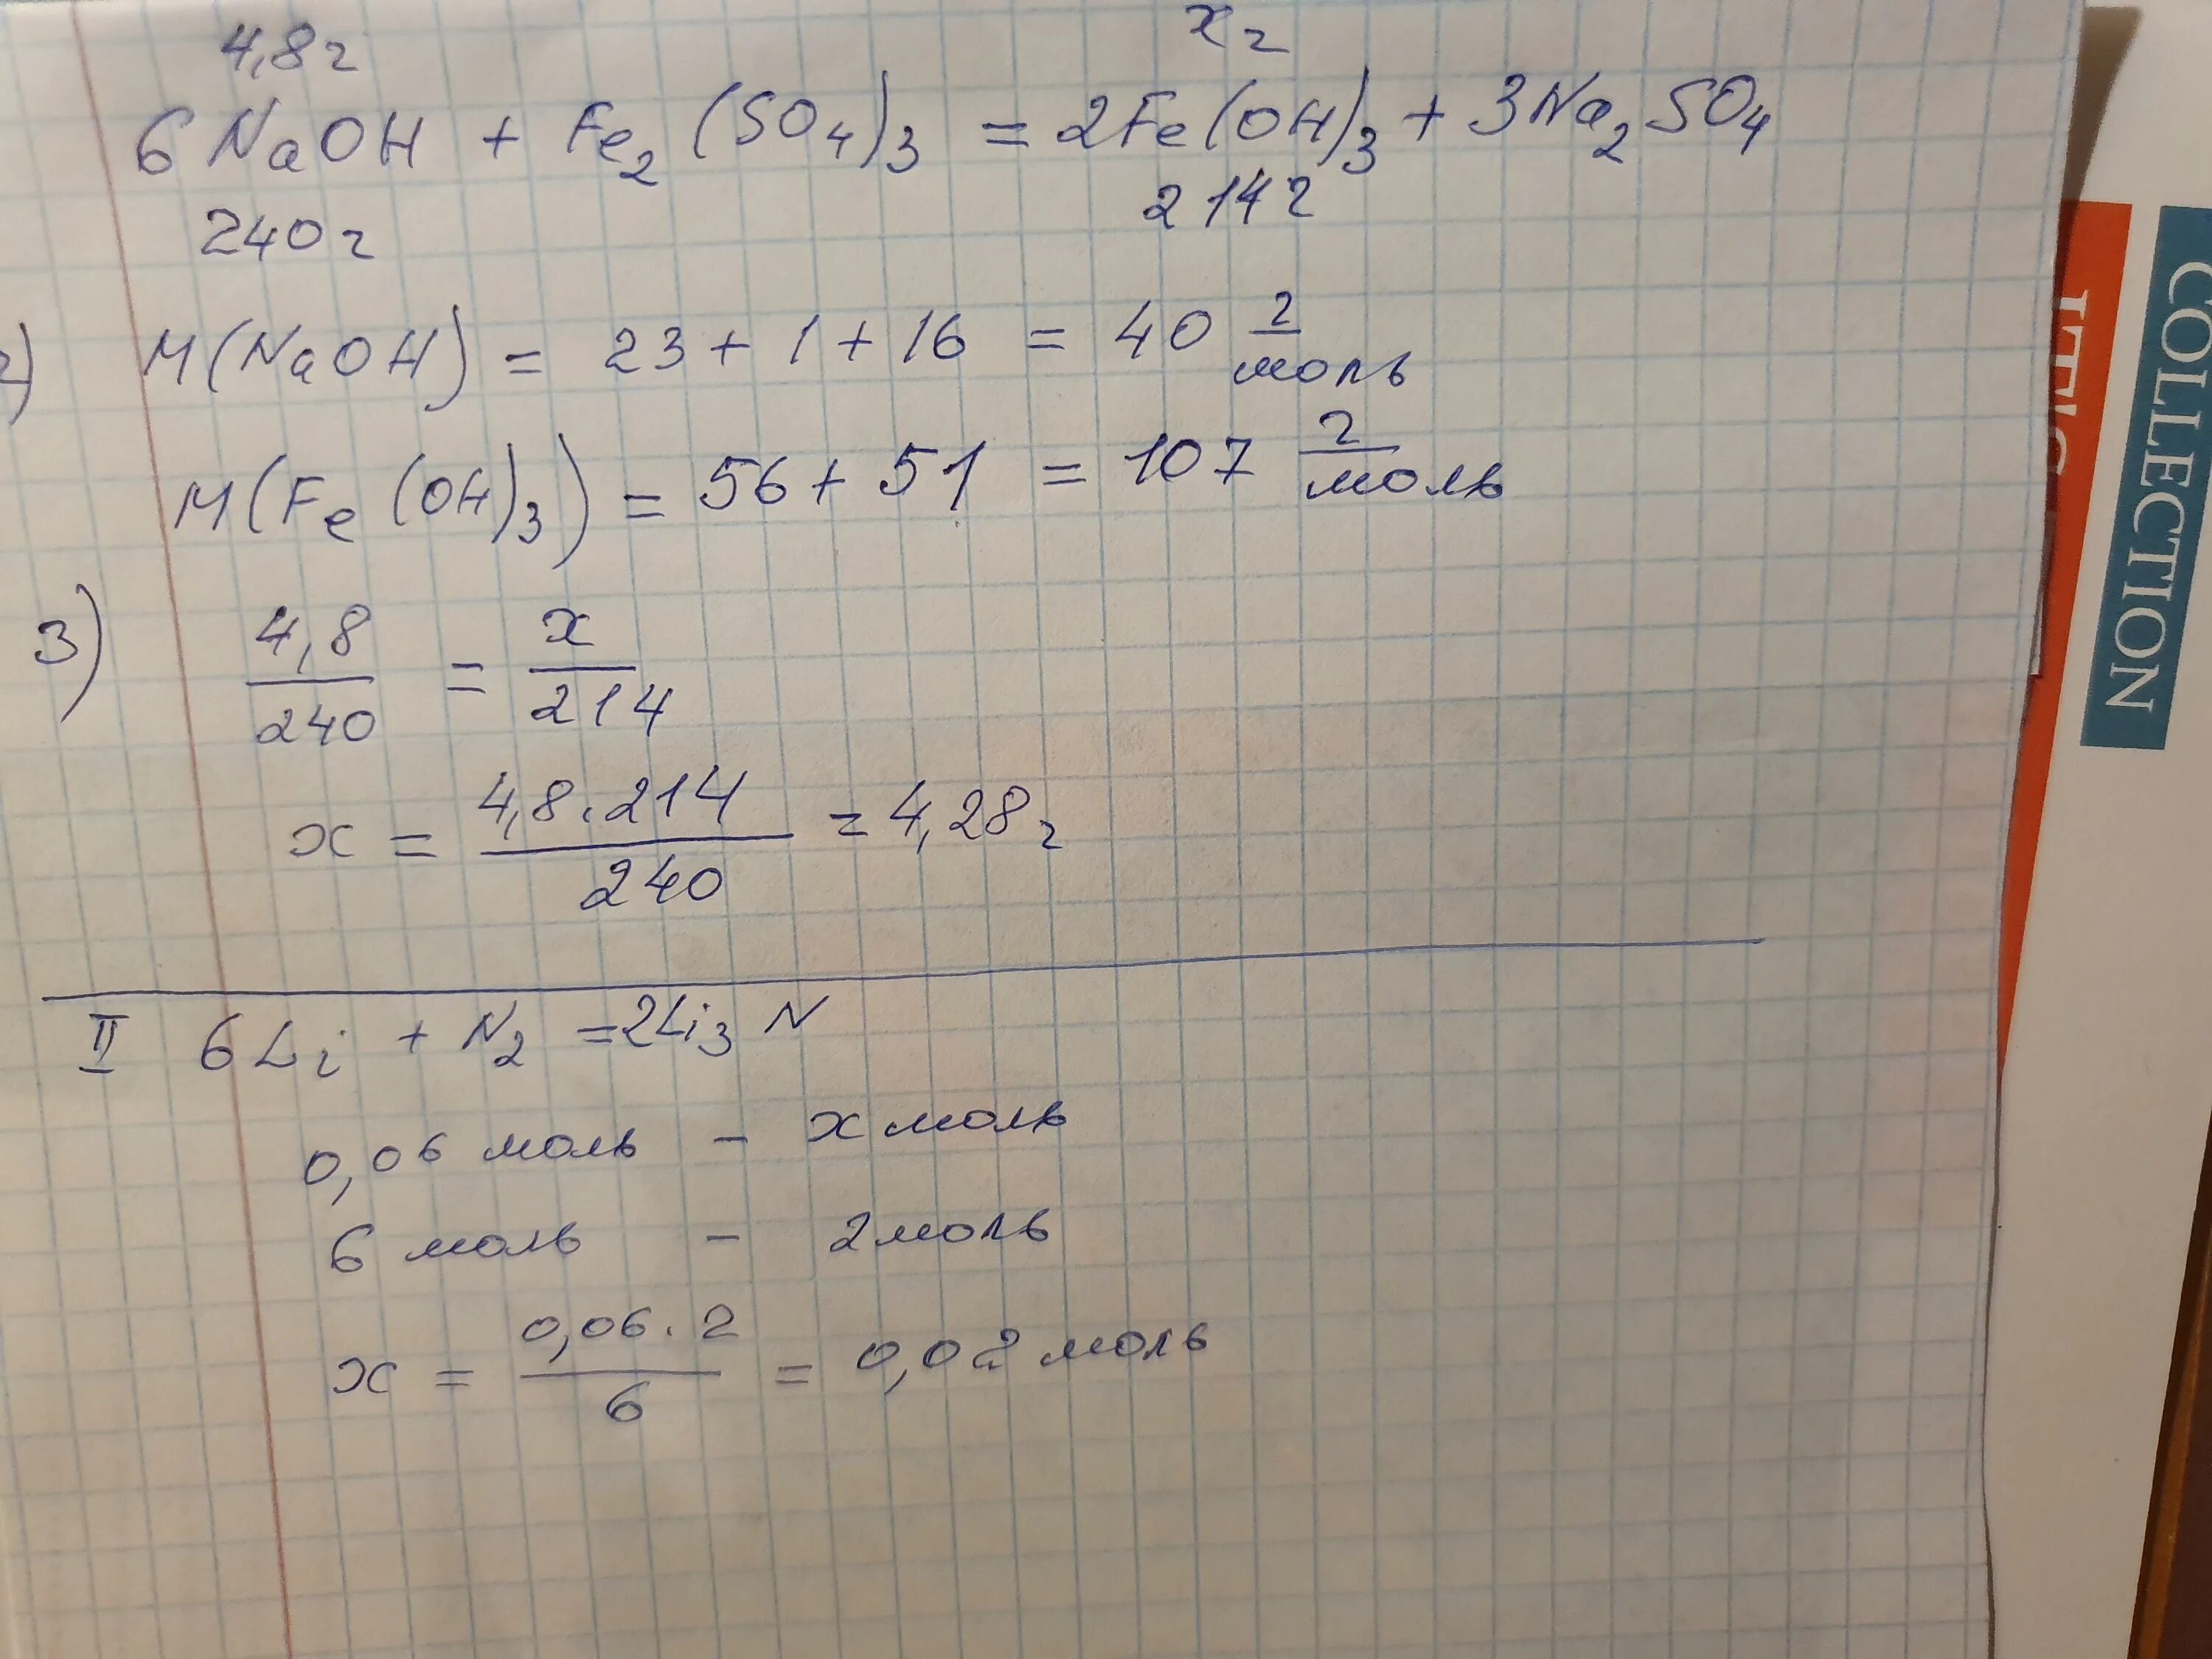 4,8г xг
6NaOH + Fe₂(SO₄)₃ = 2Fe(OH)₃ + 3Na₂SO₄
240г 214г
2) M(NaOH) = 23 + 1 + 16 = 40 г/моль
M(Fe(OH)₃) = 56 + 51 = 107 г/моль
3) 4,8/240 = x/214
x = 4,8·214/240 = 4,28г
II 6Li + N₂ = 2Li₃N
0,06 моль - x моль
6 моль - 2 моль
x = 0,06·2/6 = 0,02 моль
COLLECTION